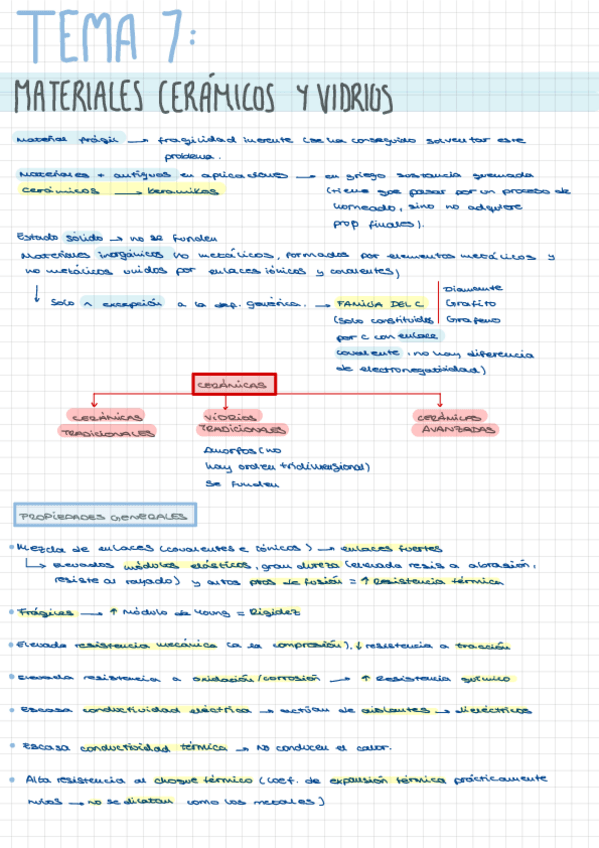 TEMA 7:
MATERIALES CERÁMICOS Y VIDRIOS
Material frágil → fragilidad inerente (se ha conseguido solventar este
problema.
Materiales + antiguos en aplicaciones → en griego sustancia quemada
cerámicos → keramikos (tiene que pasar por un proceso de
horneado, sino no adquiere
prop finales).
Estado sólido → no se funden
Materiales inorgánicos (no metálicos, formados por elementos metálicos y
no metálicos unidos por enlaces iónicos y covalentes)
↓ Solo 1 excepción a la def. genérica. → FAMILIA DEL C Diamante
(Solo constituidos Grafito
por C con enlace Grafeno
covalente, no hay diferencia
de electronegatividad)
CERÁMICAS
CERÁMICAS VIDRIOS CERÁMICAS
TRADICIONALES TRADICIONALES AVANZADAS
Amorfos (no
hay orden tridimensional)
Se funden
PROPIEDADES GENERALES
• Mezcla de enlaces (covalentes e iónicos) → enlaces fuertes
↳ elevados módulos elásticos, gran dureza (elevada resis a abrasión,
resiste al rayado) y altos ptos de fusión = ↑ Resistencia térmica
• Frágiles → ↑ módulo de Young = Rigidez
• Elevada resistencia mecánica (a la compresión), ↓ resistencia a tracción
• Elevada resistencia a oxidación/corrosión → ↑ Resistencia química
• Escasa conductividad eléctrica → actúan de aislantes → dieléctricos
• Escasa conductividad térmica → No conducen el calor.
• Alta resistencia al choque térmico (coef. de expansión térmica prácticamente
nulos → no se dilatan como los metales)